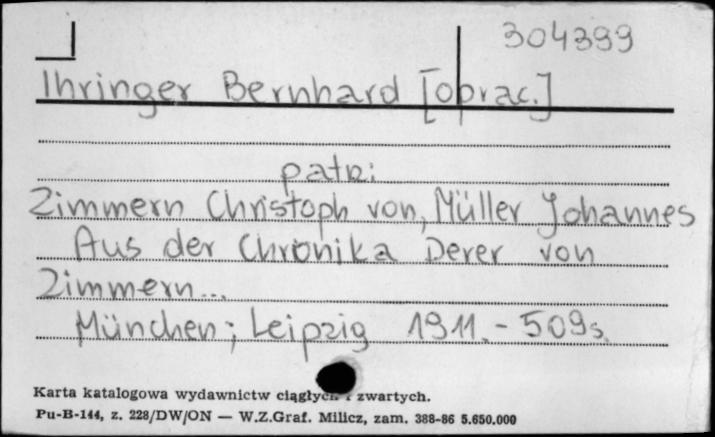 304399
Ihringer Bernhard [oprac.]
patrz:
Zimmern Christoph von, Müller Johannes
Aus der Chronika Derer von
Zimmern...
München; Leipzig 1911. - 509s.
Karta katalogowa wydawnictw ciągłych i zwartych.
Pu-B-144, z. 228/DW/ON — W.Z.Graf. Milicz, zam. 388-86 5.650.000